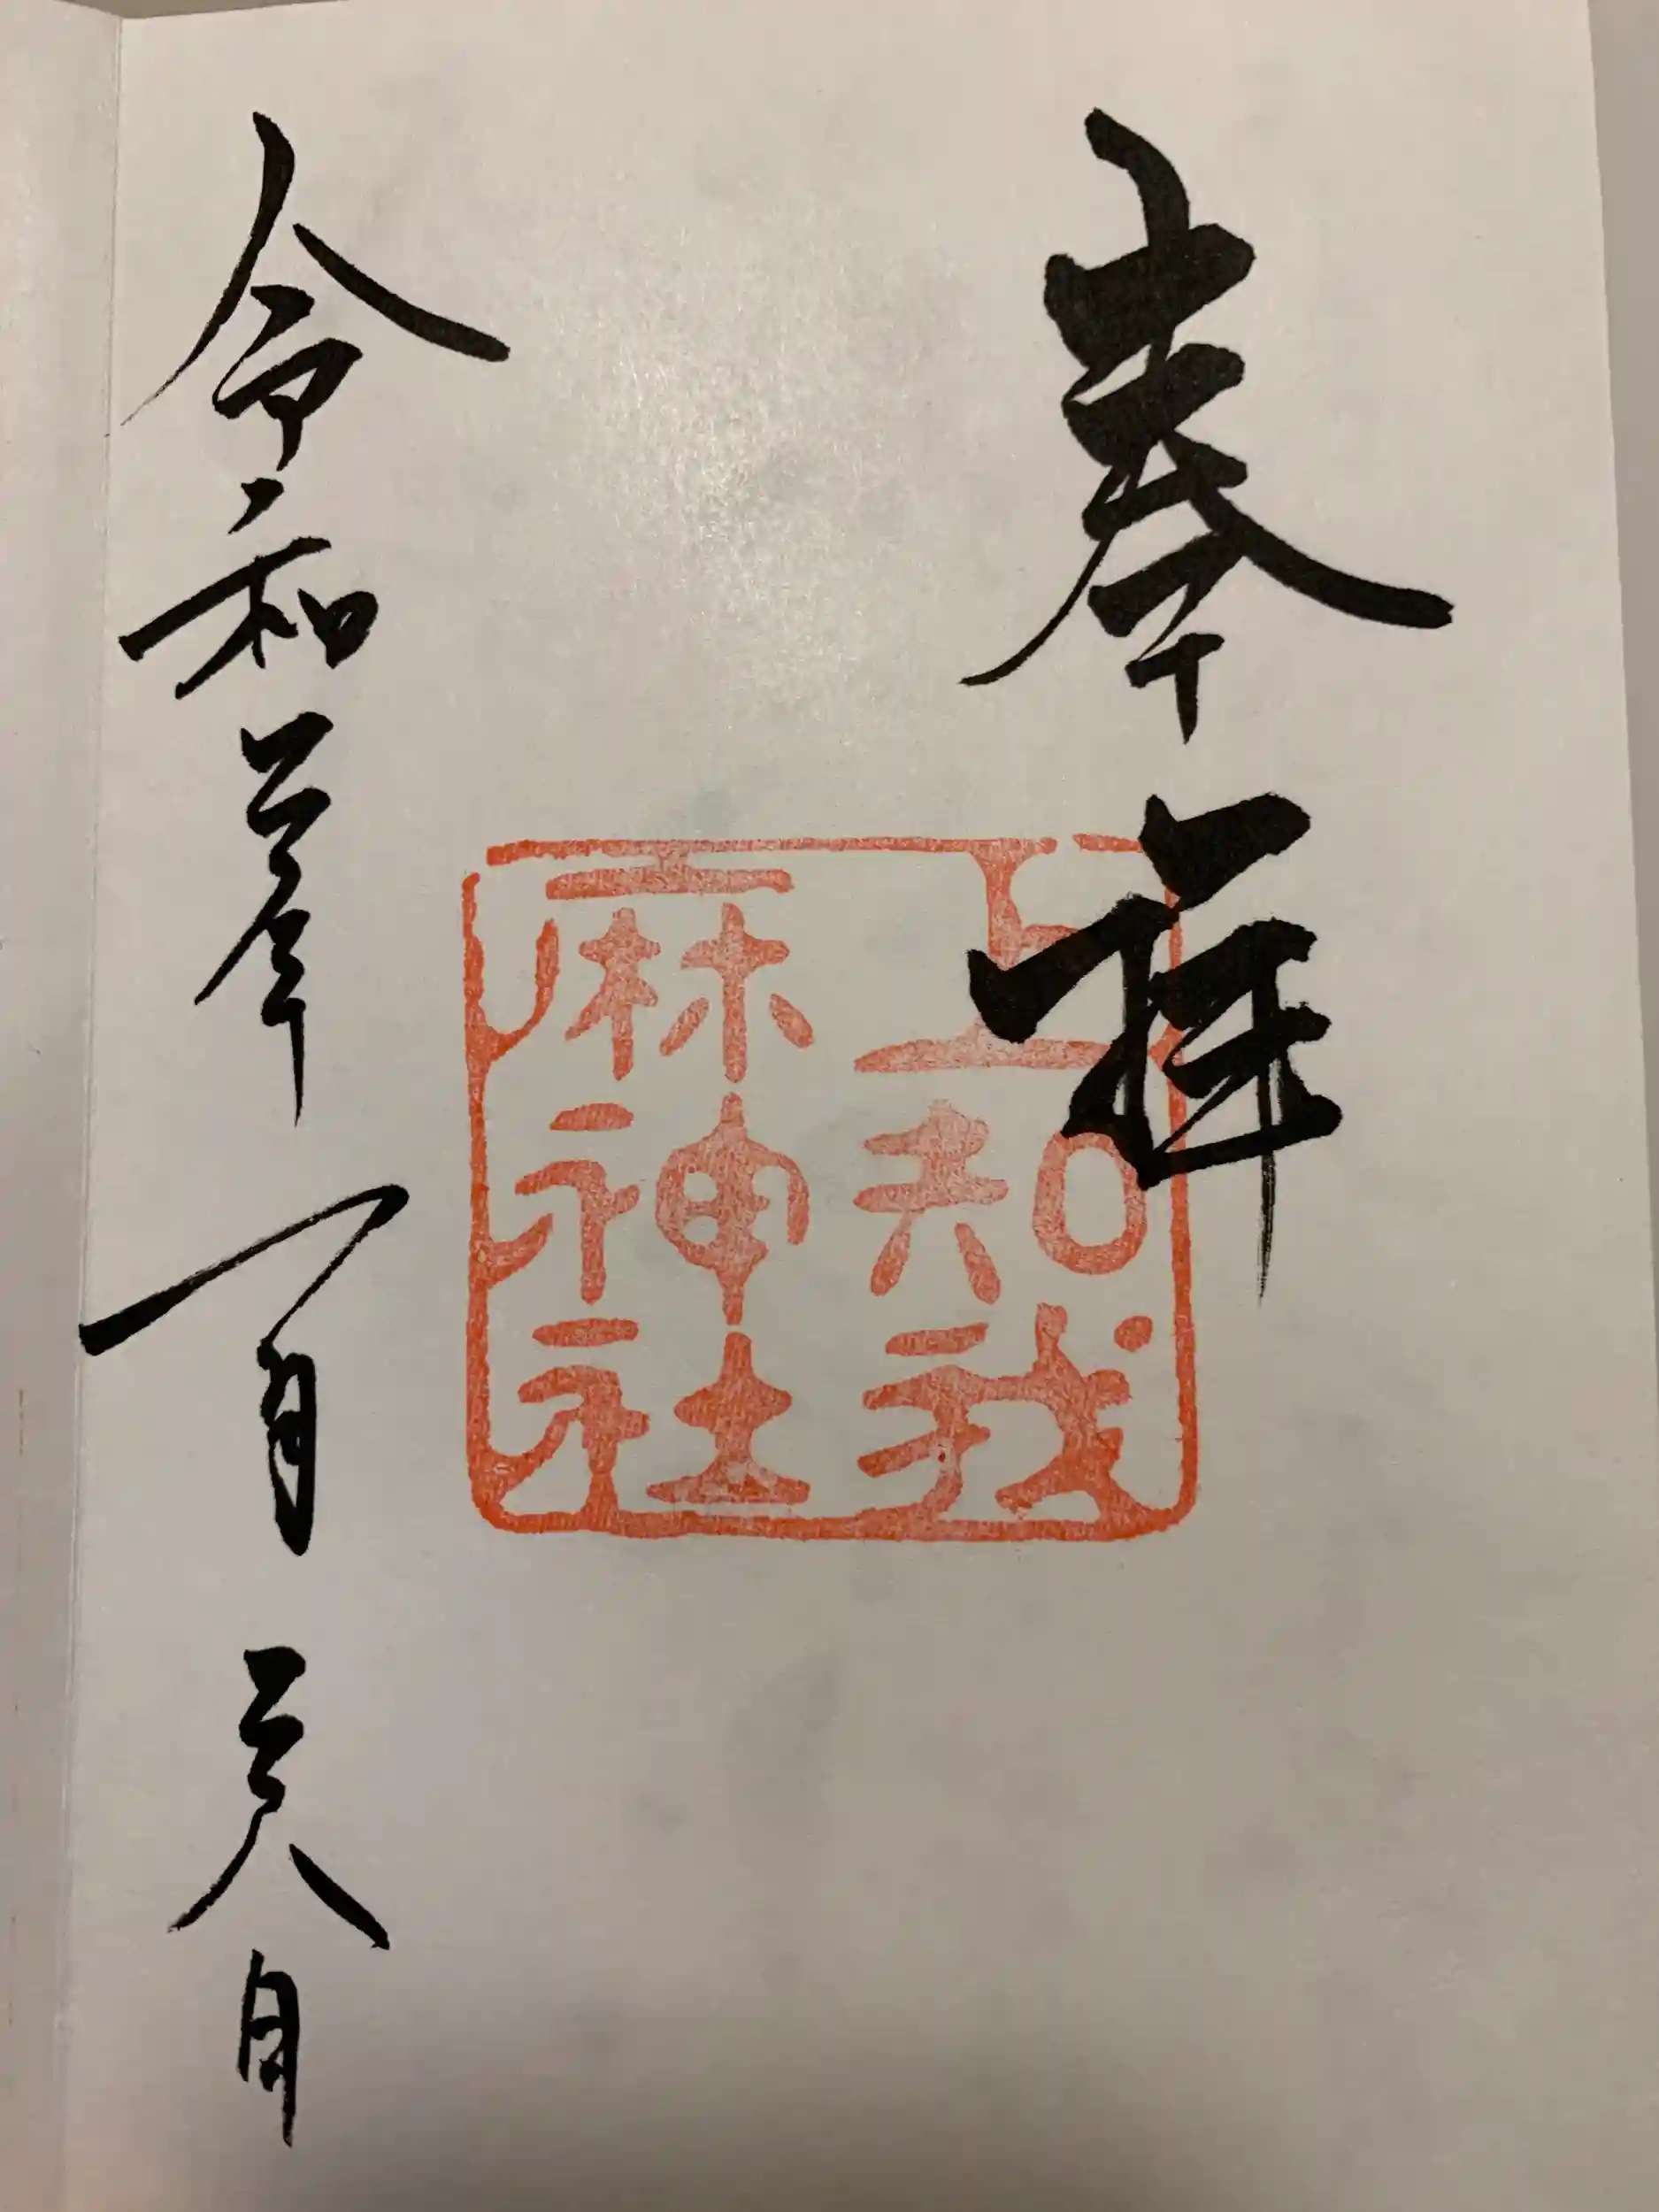 奉拝
上知我
麻神社
令和 年 一月 日